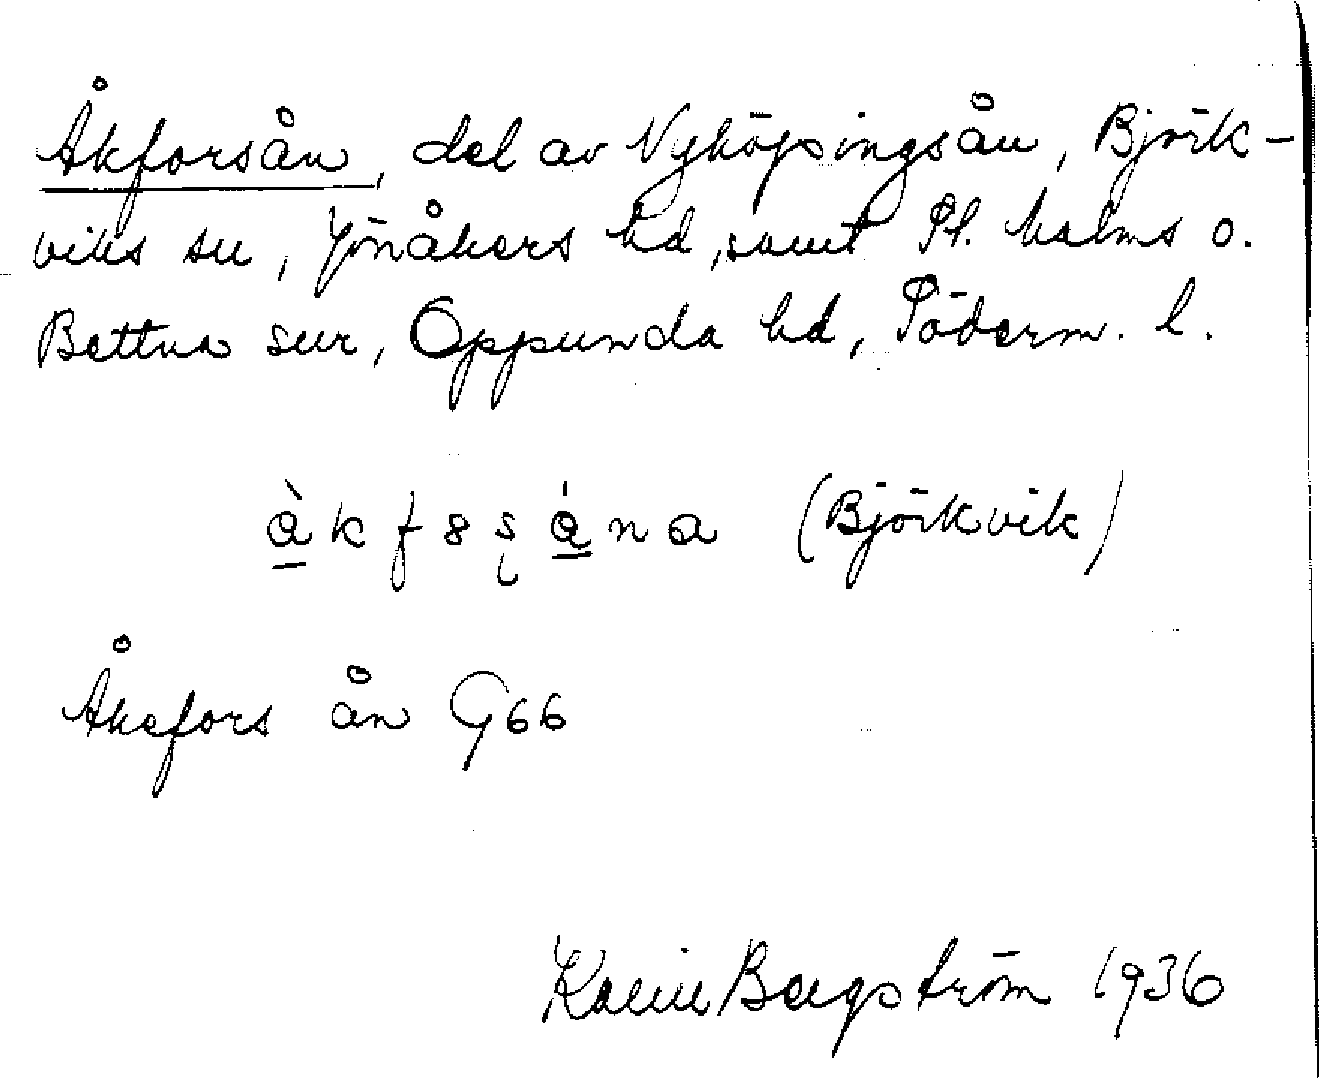 Åkforsån, del av Nyköpingsån, Björk-
viks sn, Jönåkers hd, samt St. Malms o.
Bettna snr, Oppunda hd, Söderm. l.
(Björkvik)
Åkefors ån G66
Karin Bergström 1936